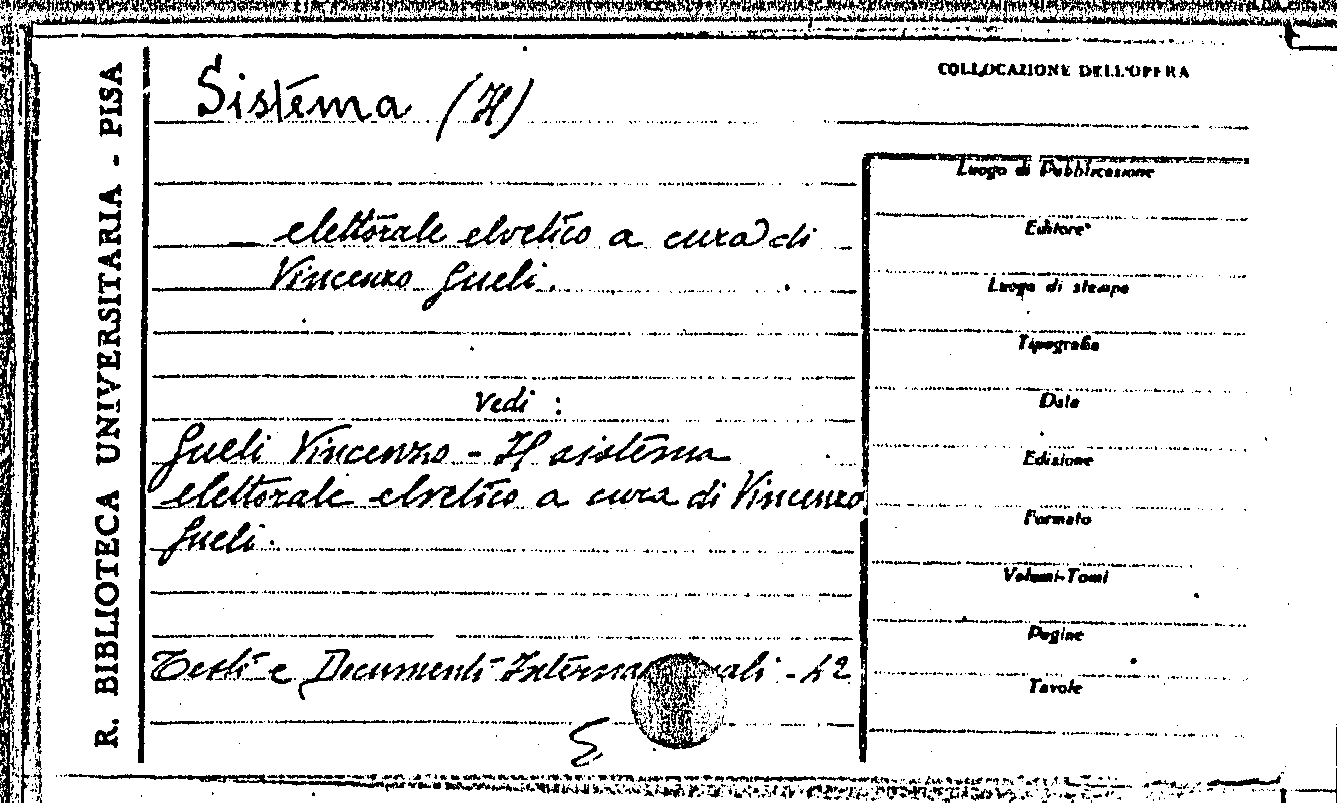 R. BIBLIOTECA UNIVERSITARIA - PISA
Sistema (Il)
elettorale elvetico a cura di
Vincenzo Gueli.
Vedi :
Gueli Vincenzo - Il sistema
elettorale elvetico a cura di Vincenzo
Gueli.
Testi e Documenti - 42
COLLOCAZIONE DELL'OPERA
Luogo di Pubblicazione
Editore
Luogo di stampa
Tipografia
Data
Edizione
Formato
Volumi-Tomi
Pagine
Tavole